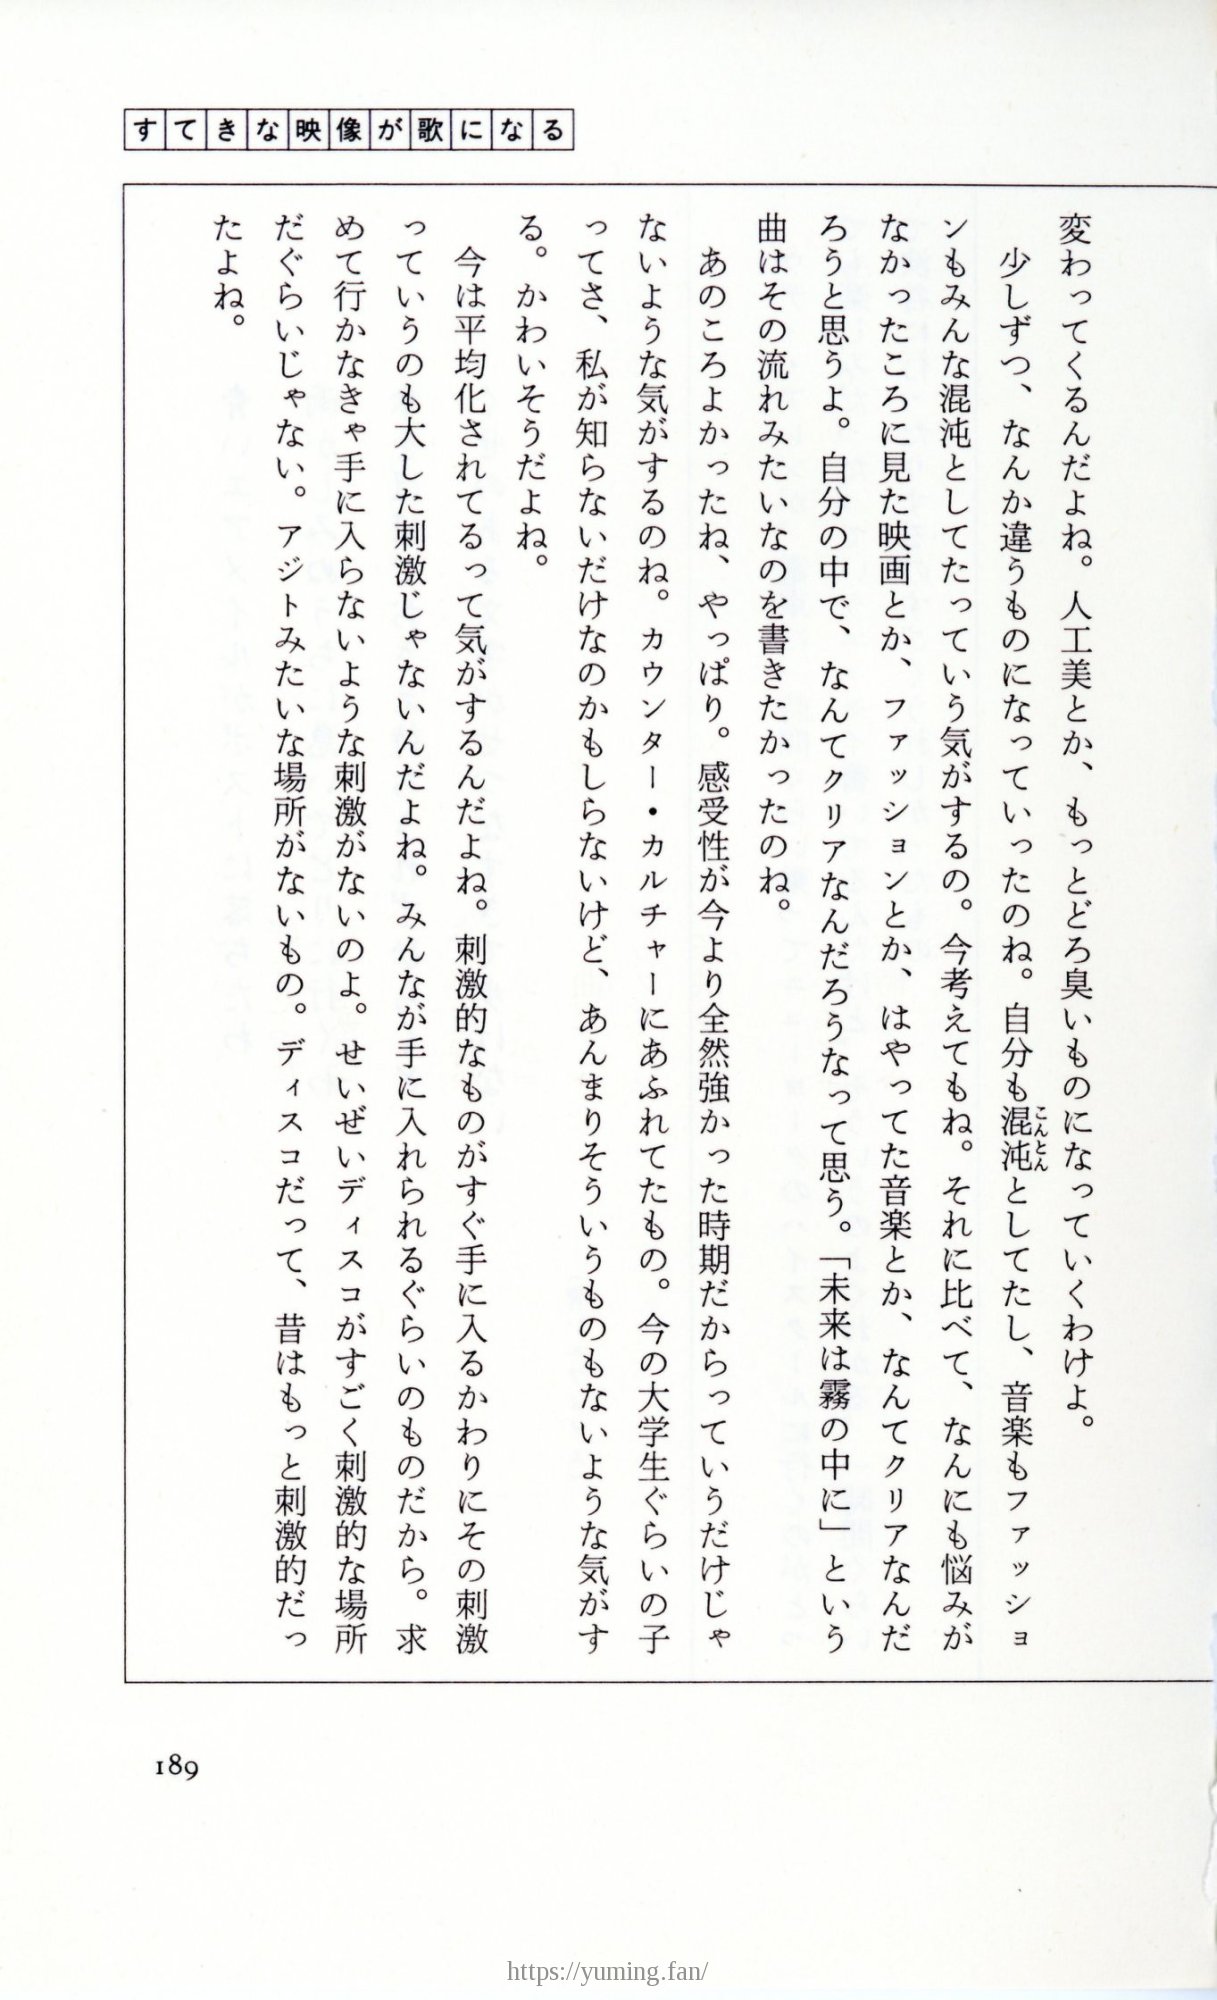 すてきな映像が歌になる
変わってくるんだよね。人工美とか、もっとどろ臭いものになっていくわけよ。
少しずつ、なんか違うものになっていったのね。自分も混沌としてたし、音楽もファッショ
こんとん
ンもみんな混沌としてたっていう気がするの。今考えてもね。それに比べて、なんにも悩みが
なかったころに見た映画とか、ファッションとか、はやってた音楽とか、なんてクリアなんだ
ろうと思うよ。自分の中で、なんてクリアなんだろうなって思う。「未来は霧の中に」という
曲はその流れみたいなのを書きたかったのね。
あのころよかったね、やっぱり。感受性が今より全然強かった時期だからっていうだけじゃ
ないような気がするのね。カウンター・カルチャーにあふれてたもの。今の大学生ぐらいの子
ってさ、私が知らないだけなのかもしらないけど、あんまりそういうものもないような気がす
る。かわいそうだよね。
今は平均化されてるって気がするんだよね。刺激的なものがすぐ手に入るかわりにその刺激
っていうのも大した刺激じゃないんだよね。みんなが手に入れられるぐらいのものだから。求
めて行かなきゃ手に入らないような刺激がないのよ。せいぜいディスコがすごく刺激的な場所
だぐらいじゃない。アジトみたいな場所がないもの。ディスコだって、昔はもっと刺激的だっ
たよね。
189
https://yuming.fan/